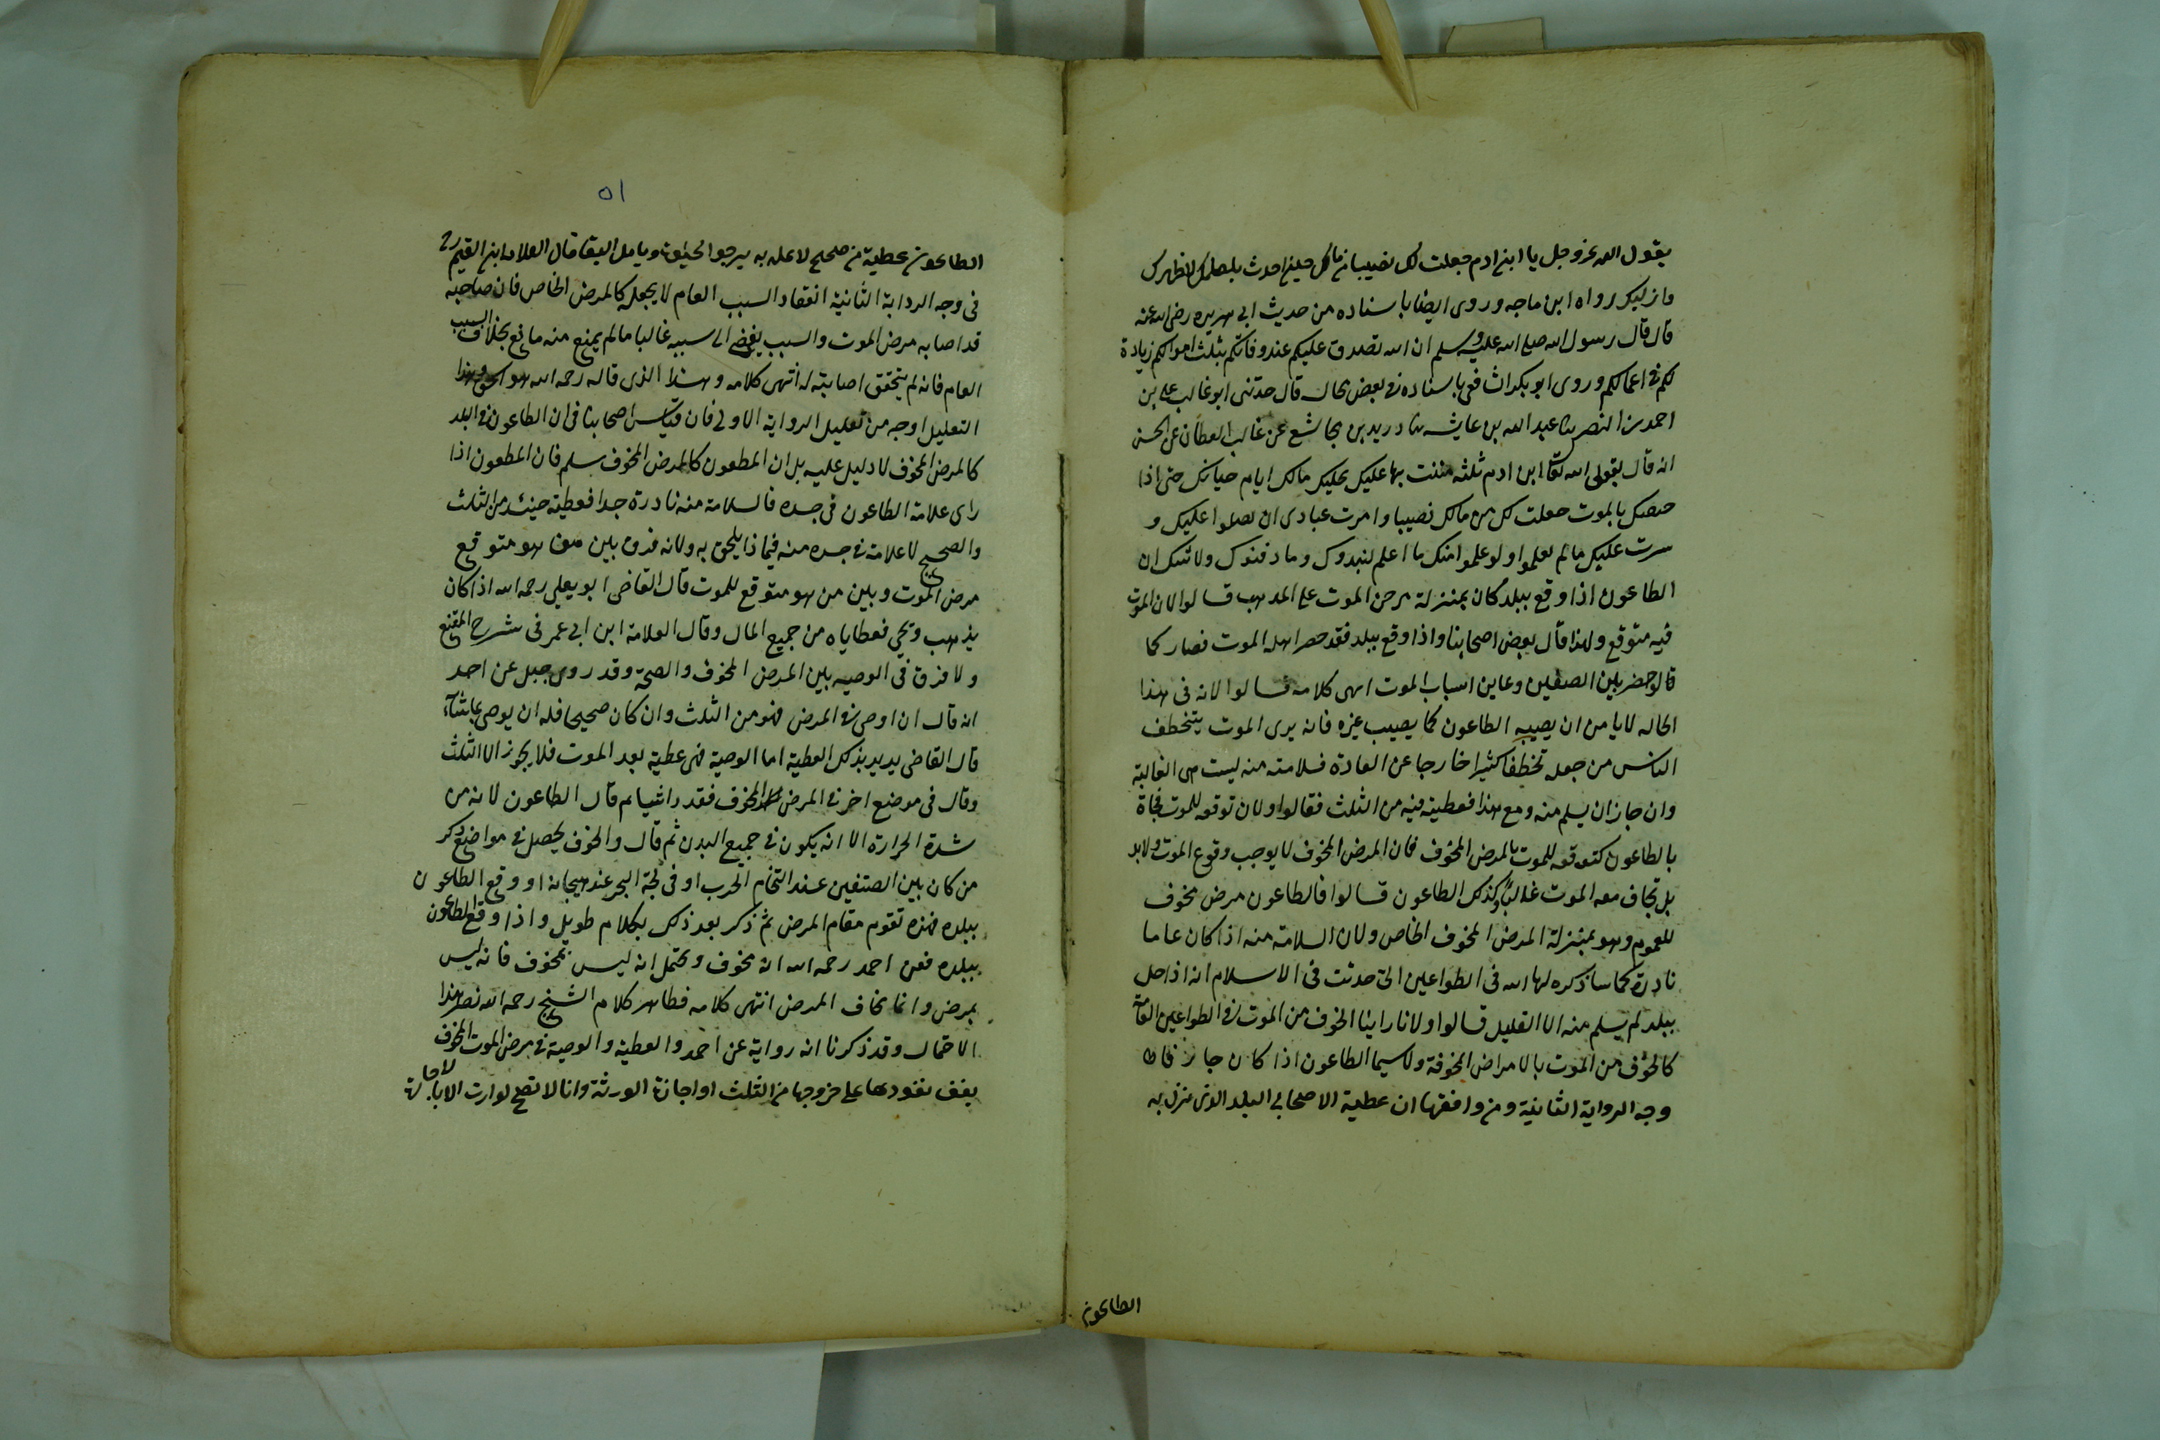 يقول الله عز وجل يا ابن ادم جعلت لك نصيبا من مالك حين اخذت بكظمك لاطهرك
وازكيك رواه ابن ماجه وروى ايضا باسناده من حديث ابي هريره رضي الله عنه
قال قال رسول الله صلى الله عليه وسلم ان الله تصدق عليكم عند وفاتكم بثلث اموالكم زيادة
لكم في اعمالكم وروى ابو بكر الشافعي باسناده في بعض قال حدثني ابو غالب علي بن
احمد بن النضر ثنا عبد الله بن عايشه ثنا دريد بن مجاشع عن غالب القطان عن الحسن
انه قال يقول الله تعا ابن ادم ثلثه مننت بها عليك مالك ايام حياتك حتى اذا
بالموت جعلت لك من مالك نصيبا وامرت عبادى ان يصلوا عليك و
سرت عليك ما لم يعلموا ولو علموا منك ما اعلم لنبذوك وما دفنوك ولا شك ان
الطاعون اذا وقع ببلد كان بمنزلة مرض الموت على المذهب قالوا لان الموت
فيه متوقع ولهذا قال بعض اصحابنا واذا وقع ببلد فقد حضر اهله الموت فصار كما
قالوا حضر بين الصفين وعاين اسباب الموت انتهى كلامه قالوا لانه في هذا
الحاله لا يا من ان يصيبه الطاعون كما يصيب غيره فانه يرى الموت يتخطف
الناس من جعله تخطفا كثيرا خارجا عن العادة فسلامته منه ليست هي الغالبة
وان جاز ان يسلم منه ومع هذا فعطيته فيه من الثلث فقالوا ولان توقعه للموت فجاة
بالطاعون كتوقعه للموت بالمرض المخوف فان المرض المخوف لا يوجب وقوع الموت ولا بد
بل تخاف معه الموت غالبا وكذلك الطاعون قالوا فالطاعون مرض مخوف
للعموم وهو بمنزلة المرض المخوف الخاص ولان السلامة منه اذا كان عاما
نادرة كما ساذكره ان شاء الله في الطواعين التي حدثت في الاسلام انه اذا حل
ببلد لم يسلم منه الا القليل قالوا ولانا راينا الخوف من الموت في الطواعين العامة
كالخوف من الموت بالامراض المخوفة ولا سيما الطاعون اذا كان جا
وجه الرواية الثانية ومن وافقها ان عطية الاصحا في البلد الذى نزل به
الطاعون
٥١
الطاعون عطية من صحيح لا علة به يرجو الحيوة ويامل البقا قال العلامة ابن القيم
في وجه الرواية الثانية انعقاد السبب العام لا يجعله كالمرض الخاص فان صاحبه
قد اصابه مرض الموت والسبب يفضى الى سببه غالبا ما لم يمنع منه مانع بخلاف السبب
العام فانه لم يتحقق اصابته له انتهى كلامه وهذا الذى قاله رحمه الله هو الحق وهذا
التعليل اوجه من تعليل الرواية الاولى فان قياس اصحابنا في ان الطاعون في البلد
كالمرض المخوف لا دليل عليه بل ان المطعون كالمرض المخوف سلم فان المطعون اذا
راى علامة الطاعون في جسده فالسلامة منه نادرة جدا فعطيته حينئذ من الثلث
والصحيح لا علامة في جسده منه فيما ذا يلحق به ولانه فرق بين من هو متوقع
مرض الموت وبين من هو متوقع للموت قال القاضي ابو يعلى رحمه الله اذا كان
يذهب ويجي فعطاياه من جميع المال وقال العلامة ابن ابي عمر في شرح المقنع
ولا فرق في الوصيه بين المرض المخوف والصحة وقد روى حنبل عن احمد
انه قال ان اوصى في المرض فهو من الثلث وان كان صحيحا فله ان يوصى بما شآء
قال القاضي يريد بذلك العطية اما الوصية فهي عطية بعد الموت فلا يجوز الا الثلث
وقال في موضع اخر في المرض المخوف فعد اشيا ثم قال الطاعون لانه من
شدة الحرارة الا انه يكون في جميع البدن ثم قال والخوف يحصل في مواضع ذكر
من كان بين الصفين عند التحام الحرب او في لجة البحر عند هيجانه او وقع الطاعون
ببلده فهذه تقوم مقام المرض ثم ذكر بعد ذلك بكلام طويل واذا وقع الطاعون
ببلده فعن احمد رحمه الله انه مخوف ويحتمل انه ليس بمخوف فانه ليس
بمرض وانما يخاف المرض انتهى كلامه فظاهر كلام الشيخ رحمه الله نصر هذا
الاحتمال وقد ذكرنا انه رواية عن احمد والعطية والوصية في مرض الموت المخوف
يقف نفوذها على خروجها من الثلث او اجازة الورثة وانها لا تصح لوارث الا باجازة